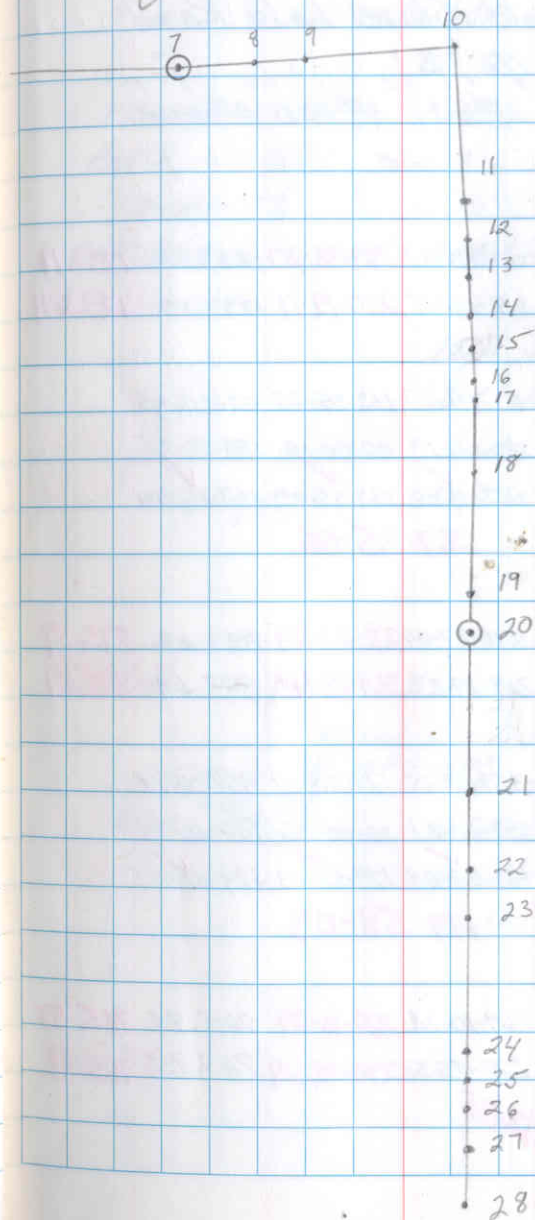 10
7 8 9
11
12
13
14
15
16
17
18
19
20
21
22
23
24
25
26
27
28